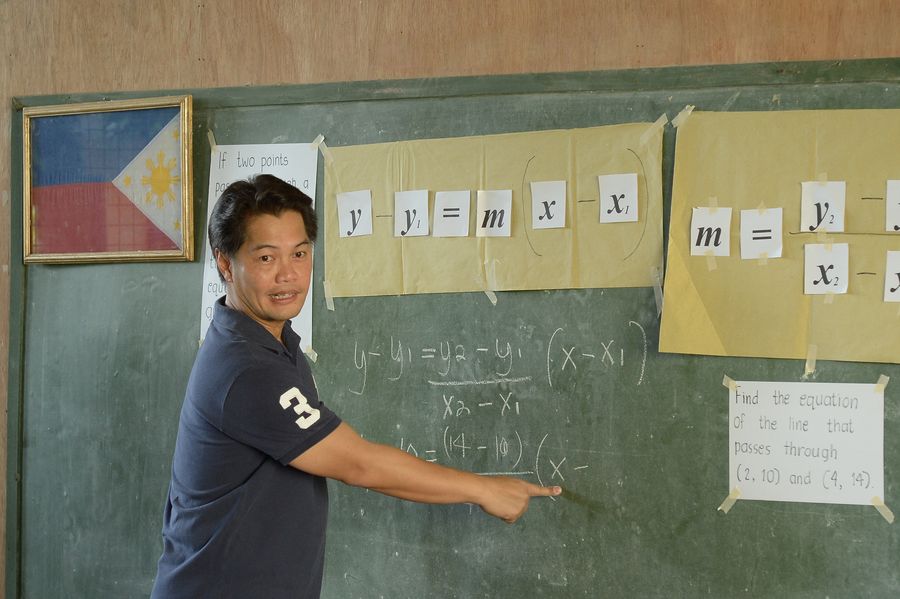 If two points
a
y - y1 = m (x - x1)
m = y2 -
x2 -
y - y1 = y2 - y1 (x - x1)
x2 - x1
= (14 - 10) (x -
Find the equation
of the line that
passes through
(2, 10) and (4, 14).
3